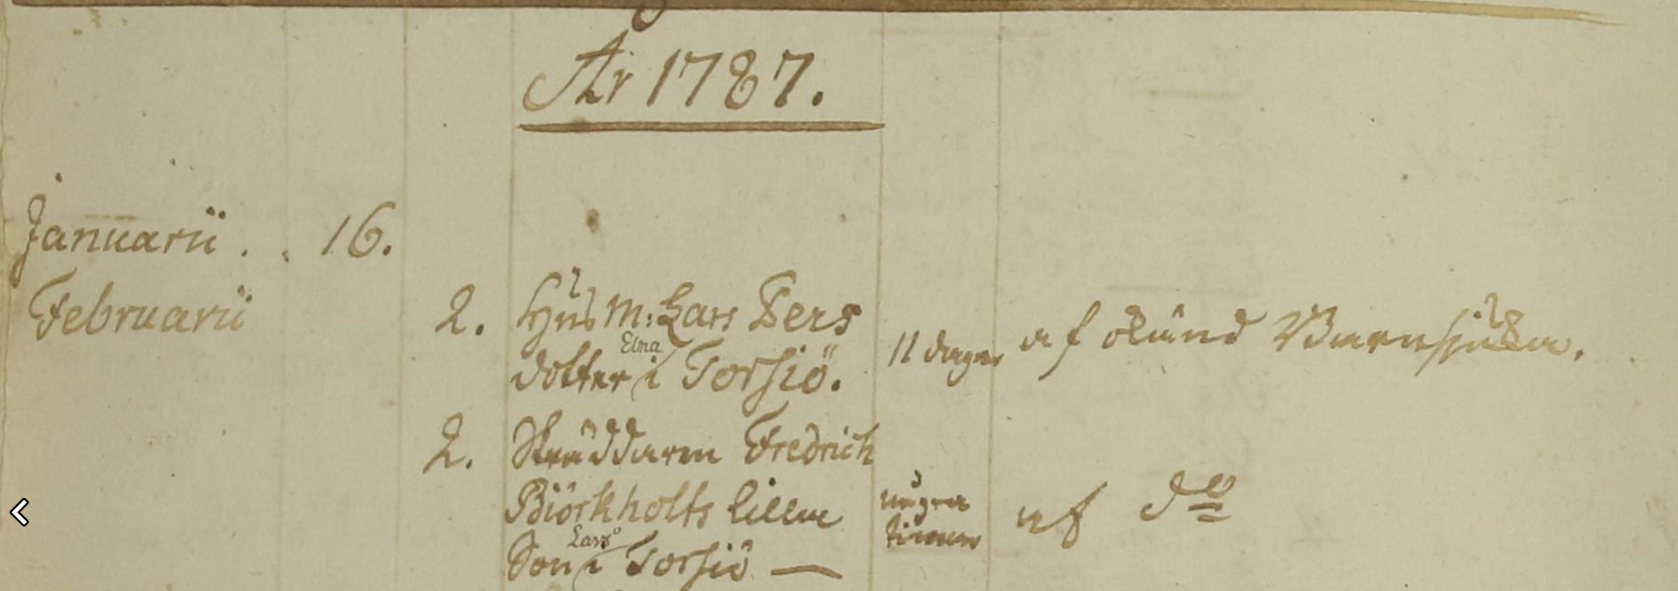 År 1787.
Januarii . . 16.
Februarii
2. Hus M: Lars Pers
dotter Elna i Torsiö. 11 dagar af okänd Barnsjuka.
2. Skräddaren Fredrich
Biörkholts lilla några
Son Lars i Torsiö — timar af do